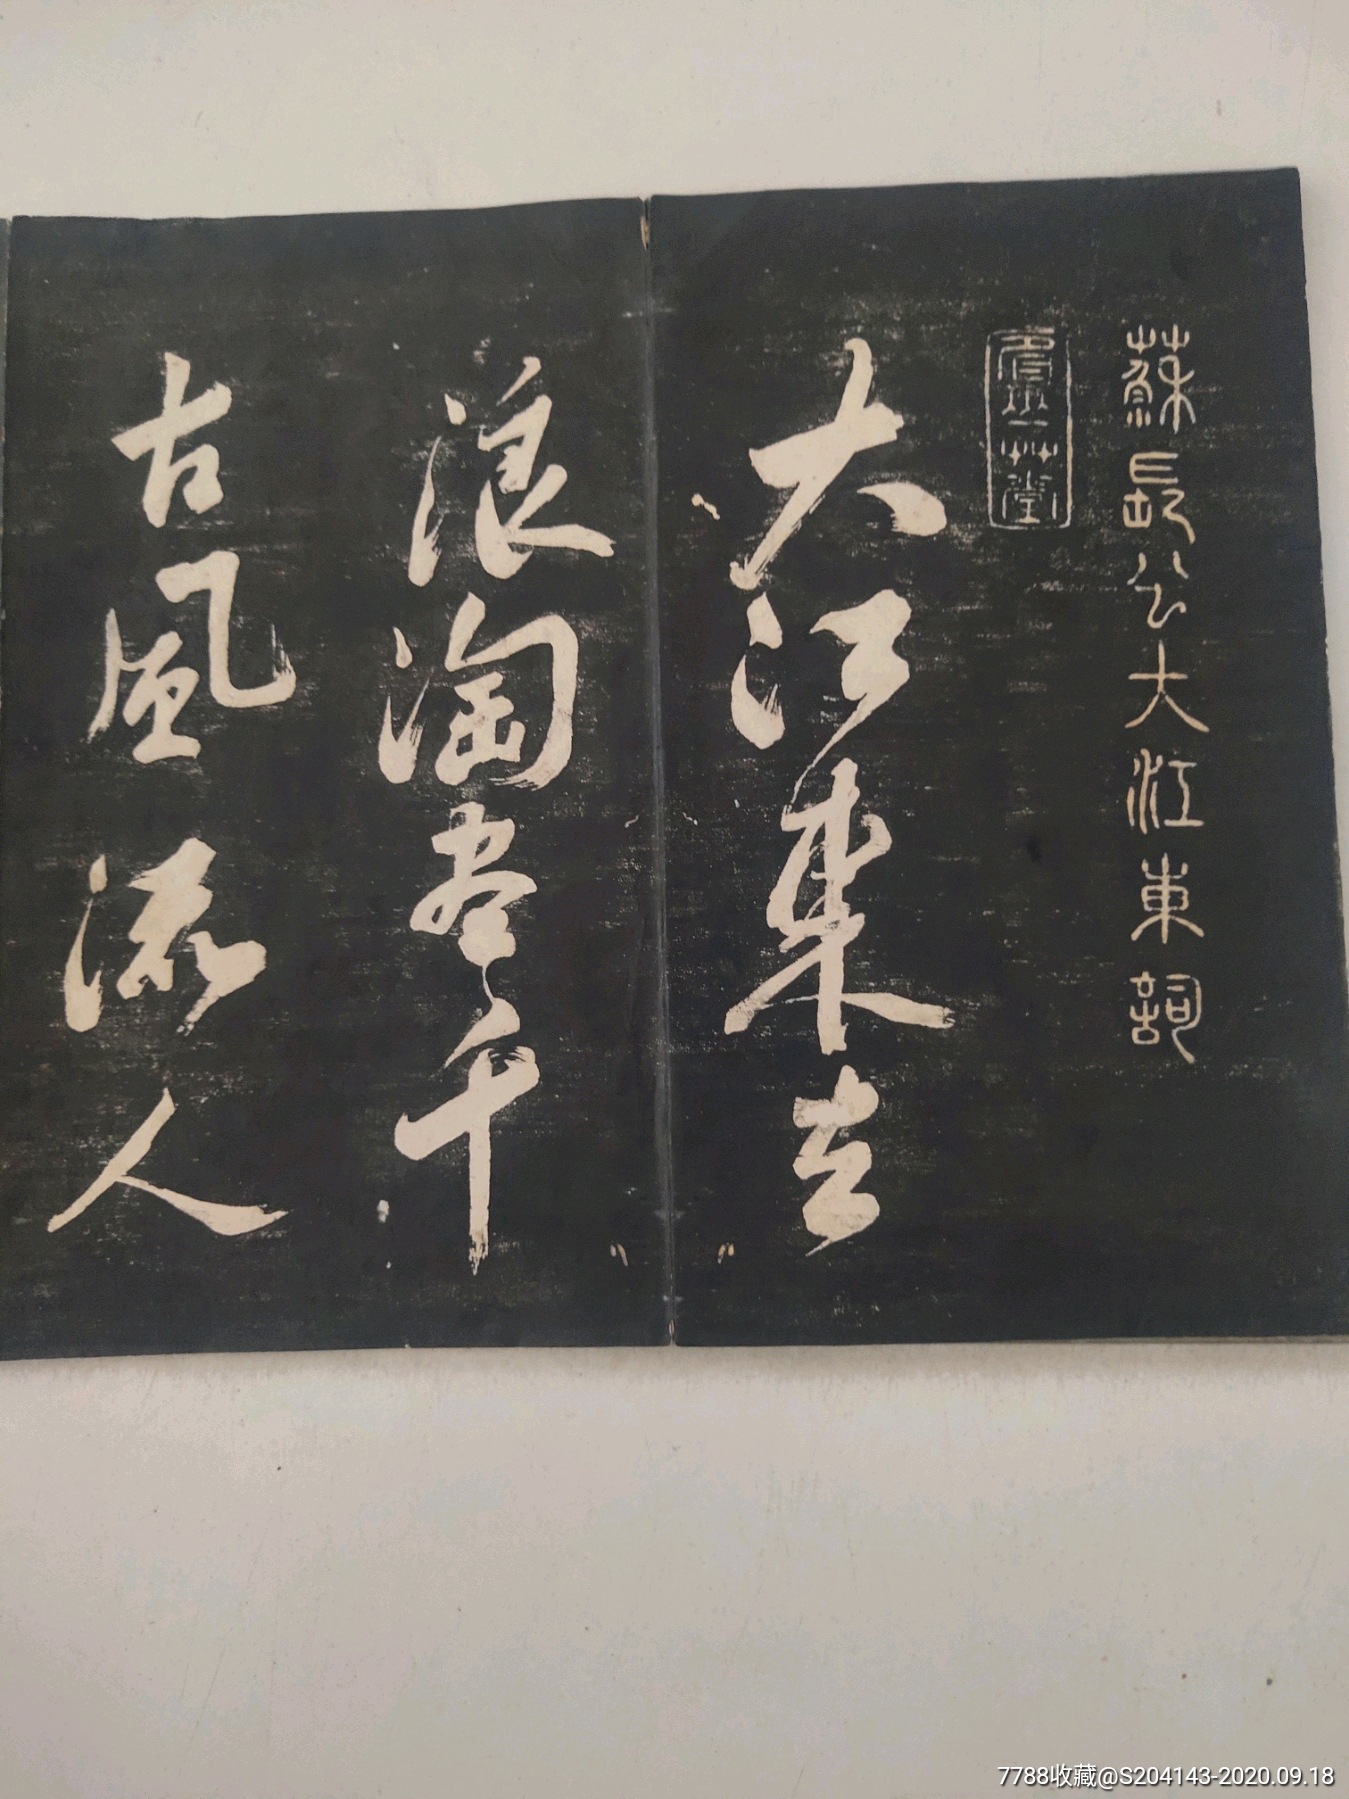 蘇長公大江東詞
大江東去
浪淘尽千
古風流人
7788收藏@S204143-2020.09.18